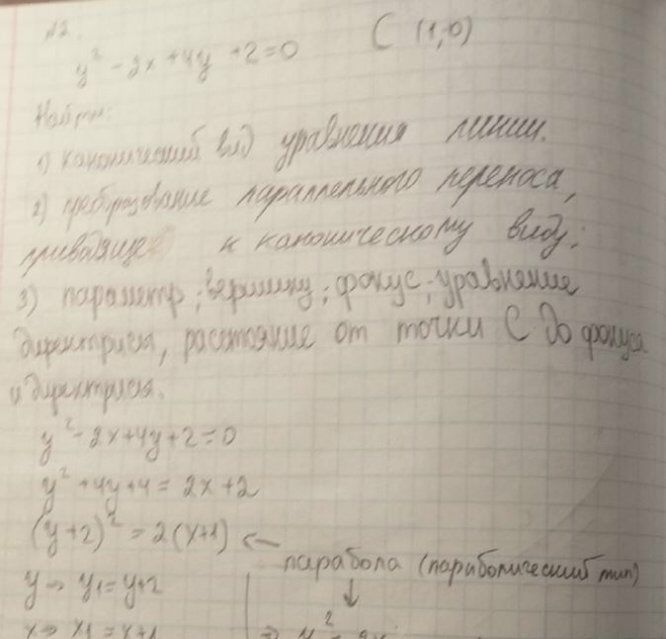 №2.
y² - 2x + 4y + 2 = 0 C (1,0)
Найти:
1) канонический вид уравнения линии.
2) преобразование параллельного переноса,
приводящее к каноническому виду;
3) параметр; вершину; фокус; уравнение
директрисы, расстояние от точки C до фокуса
и директрисы.
y² - 2x + 4y + 2 = 0
y² + 4y + 4 = 2x + 2
(y+2)² = 2(x+1) ← парабола (параболический тип)
y → y₁ = y+2 ↓
x → x₁ = x+1